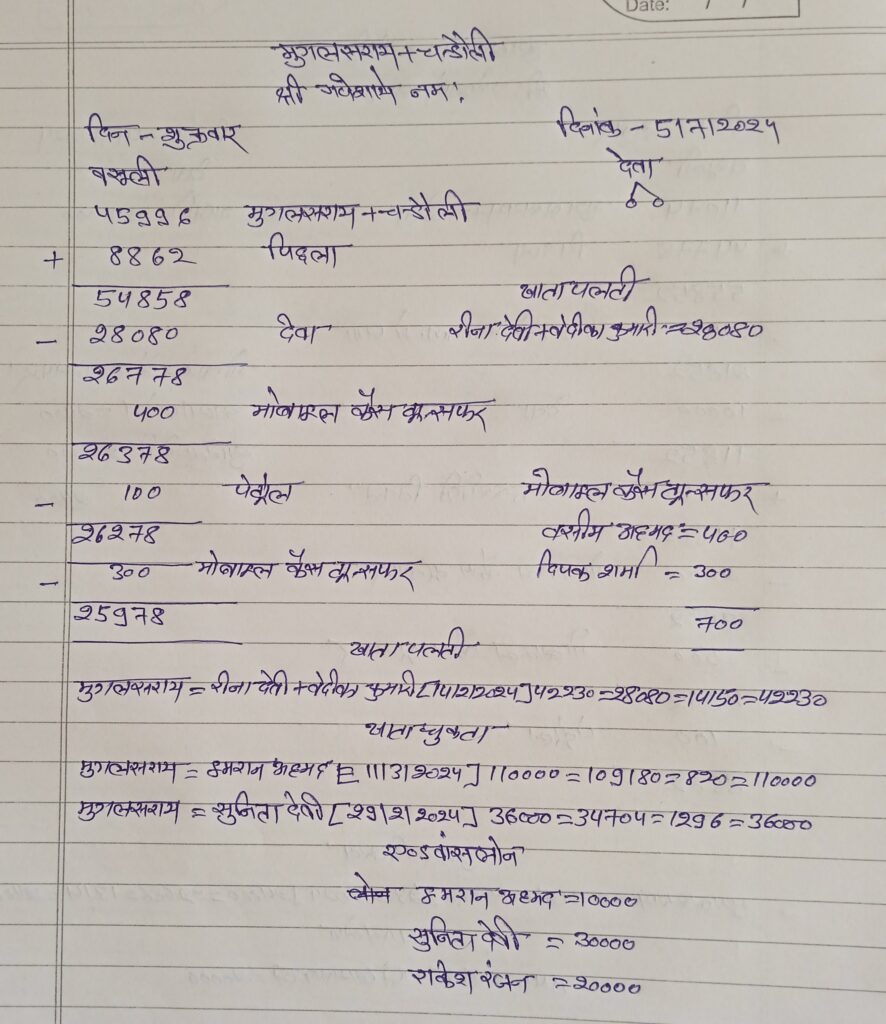 Date: / /
मुगलसराय + चन्दौली
श्री गणेशाये नमः
दिन - शुक्रवार दिनांक - 5/7/2024
वसूली देवा
45996 मुगलसराय + चन्दौली 00
+ 8862 पिछला
54858 खाता पलती
- 28080 देवा रीना देवी + वेदीका कुमारी = 28080
26778
400 मोबाइल कैस ट्रान्सफर
26378
- 100 पेट्रौल मोबाइल कैस ट्रान्सफर
26278 वसीम अहमद = 400
- 300 मोबाइल कैस ट्रान्सफर दिपक शर्मा = 300
25978 700
खाता पलती
मुगलसराय = रीना देवी + वेदीका कुमारी [14/2/2024] 42230 = 28080 = 14150 = 42230
खाता चुकता
मुगलसराय = इमरान अहमद [11/3/2024] 110000 = 109180 = 820 = 110000
मुगलसराय = सुनिता देवी [29/2/2024] 36000 = 34704 = 1296 = 36000
एण्डवांस लोन
लोन इमरान अहमद = 10000
सुनिता देवी = 30000
राकेश रंजन = 20000